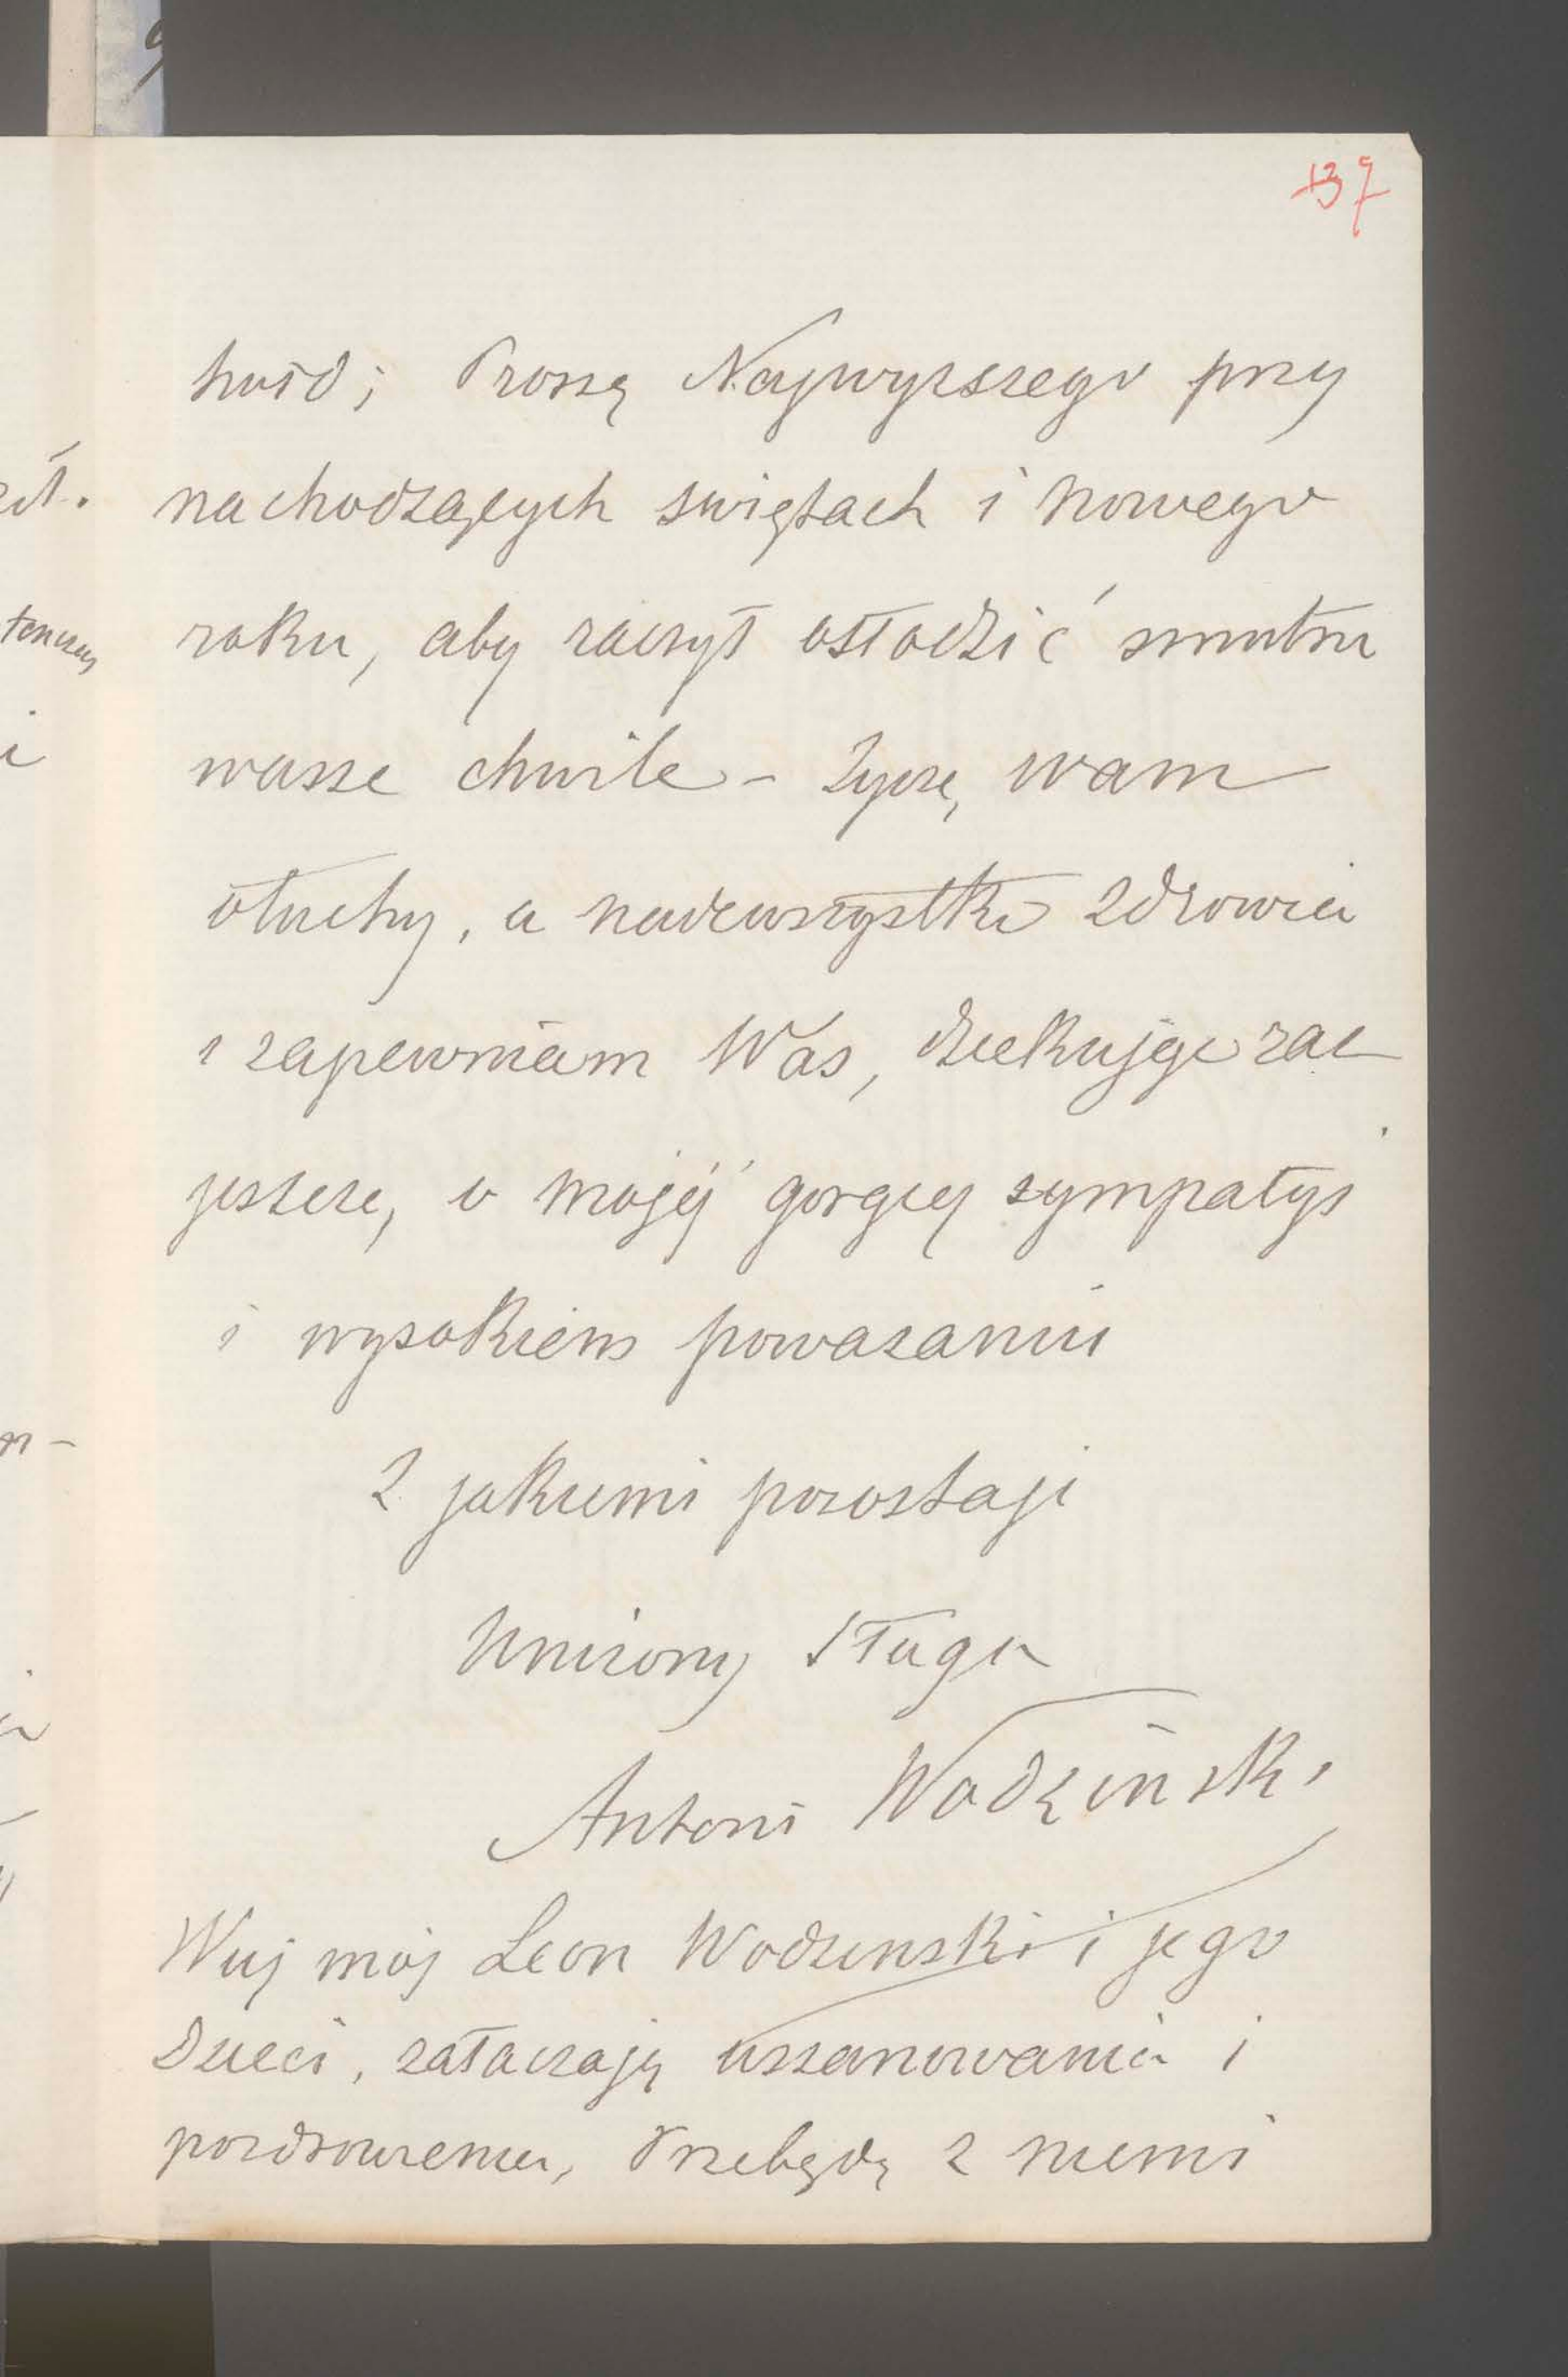 137
ność; Proszę Najwyzszego przy
nachodzących swiętach i nowego
roku, aby raczył osłodzić smutne
wasze chwile - Zyczę wam
otuchy, a nadewszystko zdrowia
i zapewniam Was, dziekując raz
jeszcze, o mojéj gorącej sympatyi
i wysokiem powazaniu
z jakiemi pozostaję
Unizony Sługa
Antoni Wodziński
Wuj mój Leon Wodzinski i jego
Dzieci, załaczają uszanowania i
pozdrowienia, Przebędę z niemi